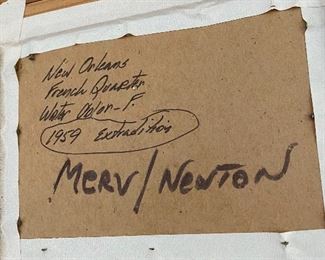 New Orleans
French Quarter
Water Color - F.
1959 Extradition
MERV/NEWTON